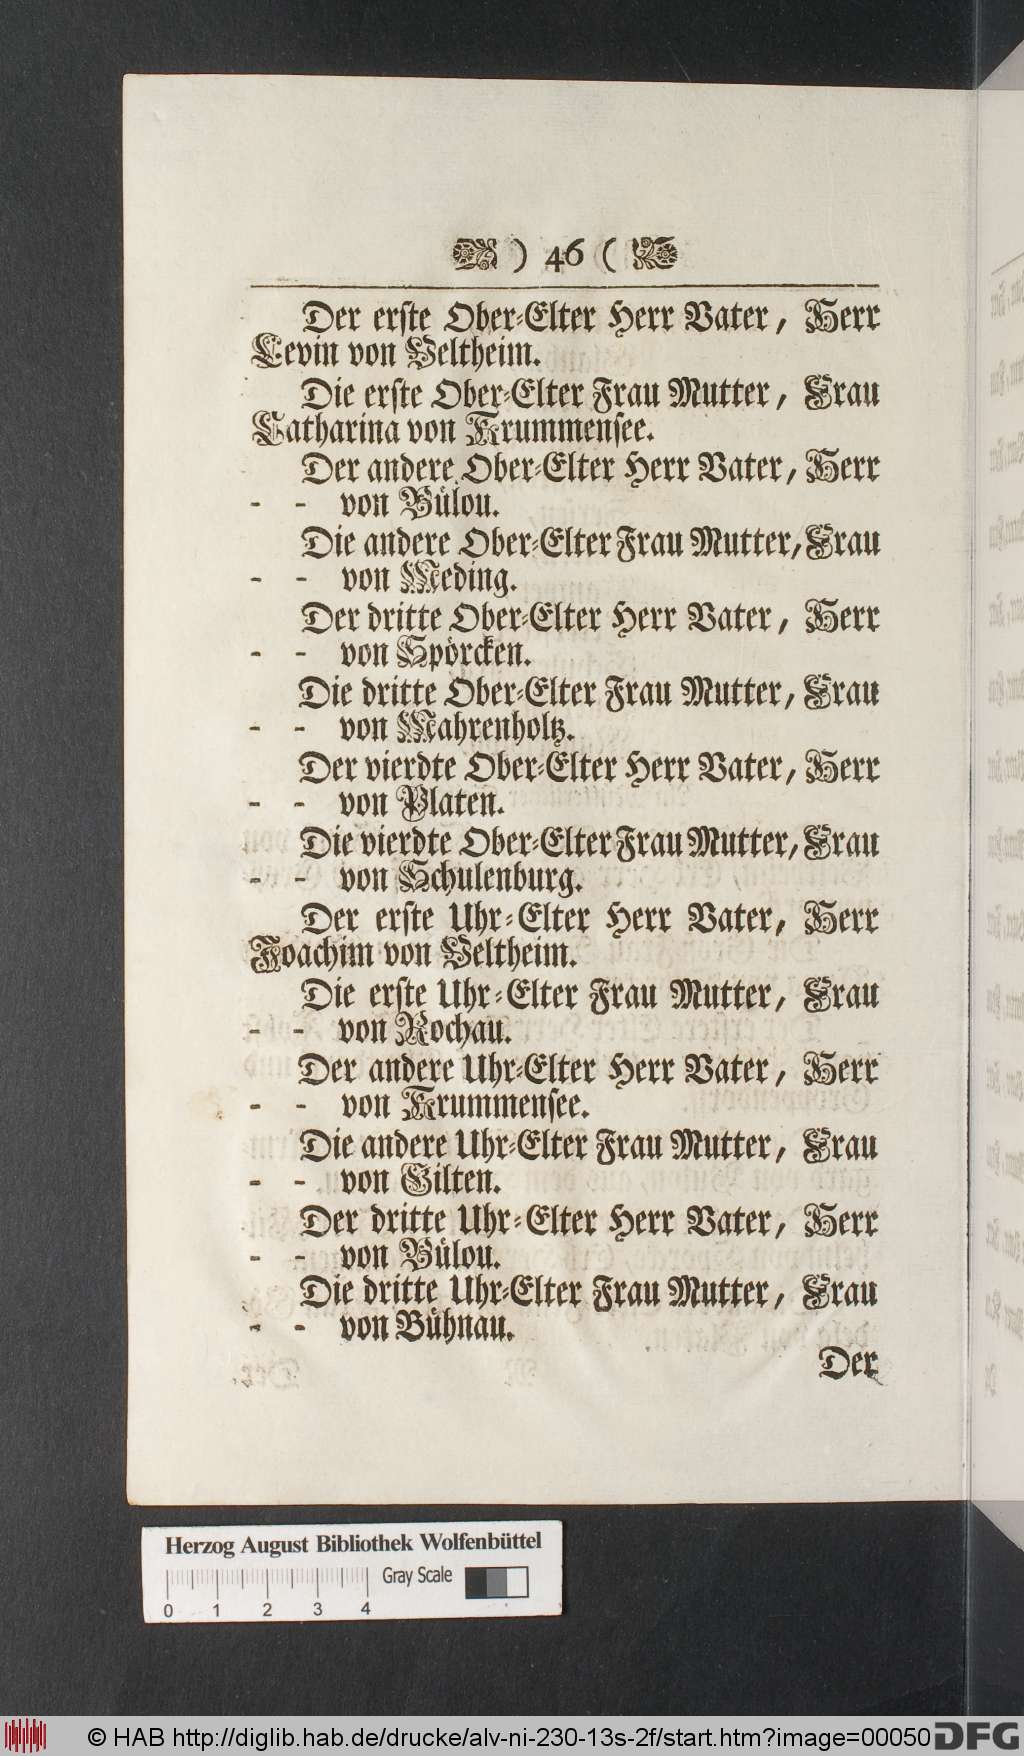 ) 46 (
Der erste Ober-Elter Herr Vater, Herr
Levin von Veltheim.
Die erste Ober-Elter Frau Mutter, Frau
Catharina von Krummensee.
Der andere Ober-Elter Herr Vater, Herr
- - von Bülou.
Die andere Ober-Elter Frau Mutter, Frau
- - von Meding.
Der dritte Ober-Elter Herr Vater, Herr
- - von Spörcken.
Die dritte Ober-Elter Frau Mutter, Frau
- - von Mahrenholtz.
Der vierdte Ober-Elter Herr Vater, Herr
- - von Platen.
Die vierdte Ober-Elter Frau Mutter, Frau
- - von Schulenburg.
Der erste Uhr-Elter Herr Vater, Herr
Joachim von Veltheim.
Die erste Uhr-Elter Frau Mutter, Frau
- - von Rochau.
Der andere Uhr-Elter Herr Vater, Herr
- - von Krummensee.
Die andere Uhr-Elter Frau Mutter, Frau
- - von Gilten.
Der dritte Uhr-Elter Herr Vater, Herr
- - von Bülou.
Die dritte Uhr-Elter Frau Mutter, Frau
- - von Bühnau.
Der
Herzog August Bibliothek Wolfenbüttel
Gray Scale
0 1 2 3 4
© HAB http://diglib.hab.de/drucke/alv-ni-230-13s-2f/start.htm?image=00050 DFG